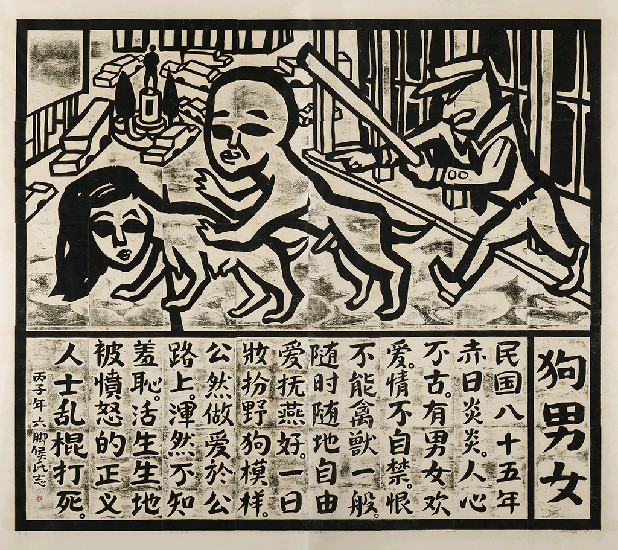 狗男女
民国八十五年
赤日炎炎。人心
不古。有男女欢
爱。情不自禁。恨
不能禽獸一般。
随时随地自由
爱抚燕好。一日
妝扮野狗模样。
公然做爱於公
路上。渾然不知
羞恥。活生生地
被憤怒的正义
人士乱棍打死。
丙子年六脚侯氏志